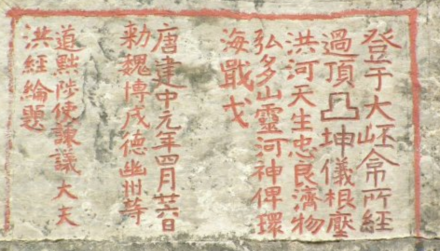 登于大岯命所經
過頂凸坤儀根壓
洪河天生忠良濟物
弘多山靈河神俾環
海戢戈
唐建中元年四月廿六日
勑魏博成德幽州等
道黜陟使諫議大夫
洪經綸題